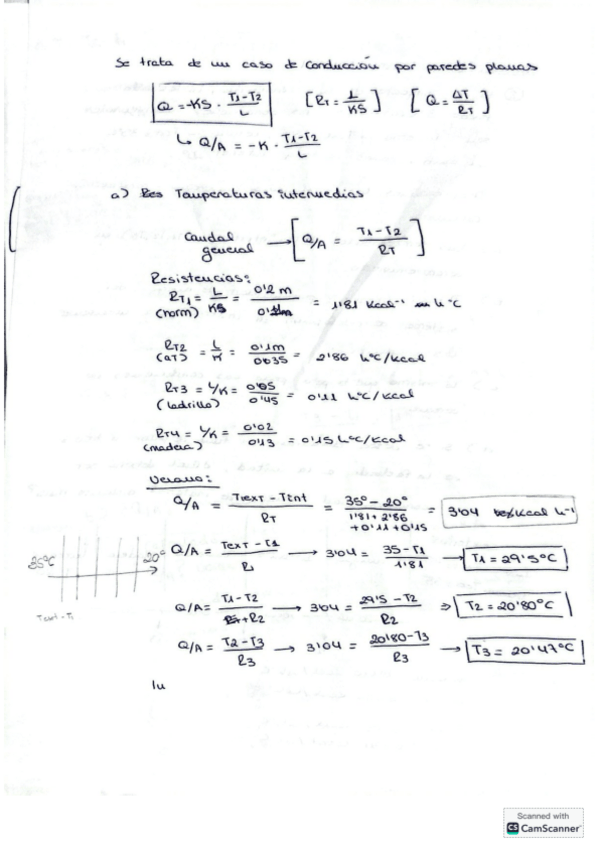 Se trata de un caso de conducción por paredes planas
Q = -KS · T1-T2/L [RT = L/KS] [Q = ΔT/RT]
↳ Q/A = -K · T1-T2/L
a) Res Temperaturas intermedias
caudal general → [Q/A = T1-T2/RT]
Resistencias:
RT1 = L/KS = 0'2 m / = 1'81 Kcal⁻¹ h°C
(norm)
RT2 = L/K = 0'1m/0'035 = 2'86 h°C/Kcal
(AT)
RT3 = L/K = 0'05/0'45 = 0'11 h°C/Kcal
(ladrillo)
RT4 = L/K = 0'02/0'13 = 0'15 h°C/Kcal
(madera)
Verano:
Q/A = Text - Tint/RT = 35° - 20°/1'81+2'86+0'11+0'15 = 3'04 Kcal h⁻¹
35°C 20° Q/A = Text - T1/R1 → 3'04 = 35-T1/1'81 → T1 = 29'5°C
Q/A = T1-T2/R2 → 3'04 = 29'5 - T2/R2 ⇒ T2 = 20'80°C
Text - T1
Q/A = T2-T3/R3 → 3'04 = 20'80-T3/R3 → T3 = 20'47°C
Iu
Scanned with
CS CamScanner